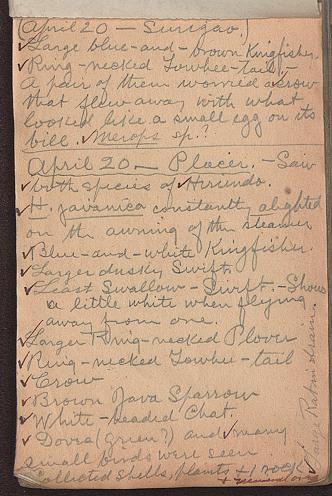 April 20 — Surigao.
✓Large blue-and-brown Kingfisher.
✓Ring-necked Towhee-tail.✓
A pair of them worried a crow
that flew away with what
looked like a small egg on its
bill. ✓Merops sp.?
April 20 — Placer. — Saw
✓both species of ✓Hirundo.
✓H. javanica constantly alighted
on the awning of the steamer
✓Blue-and-white Kingfisher.
✓Larger dusky Swift.
✓Least Swallow-Swift. — Shows
a little white when flying
away from one.
✓Larger Ring-necked Plover
✓Ring-necked Towhee-tail
✓Crow
✓Brown Java Sparrow
✓White-headed Chat.
✓Doves (green?) and ✓many
small birds were seen
Collected shells, plants + 1 rock
✓Large